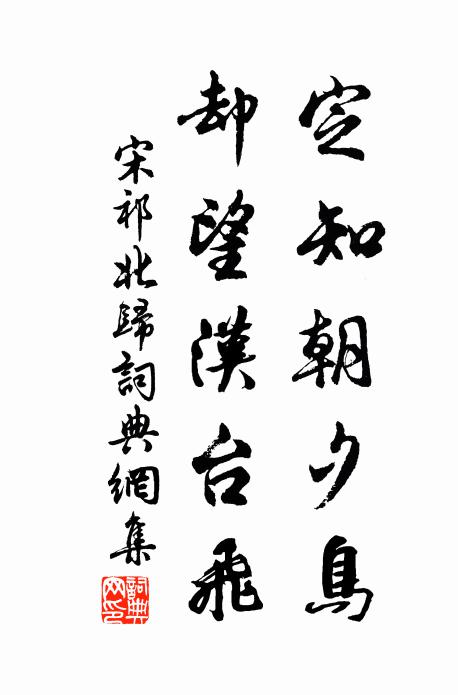 定知朝夕鳥
却望漢台飛
宋祁北歸詞典網集
詞典
网印